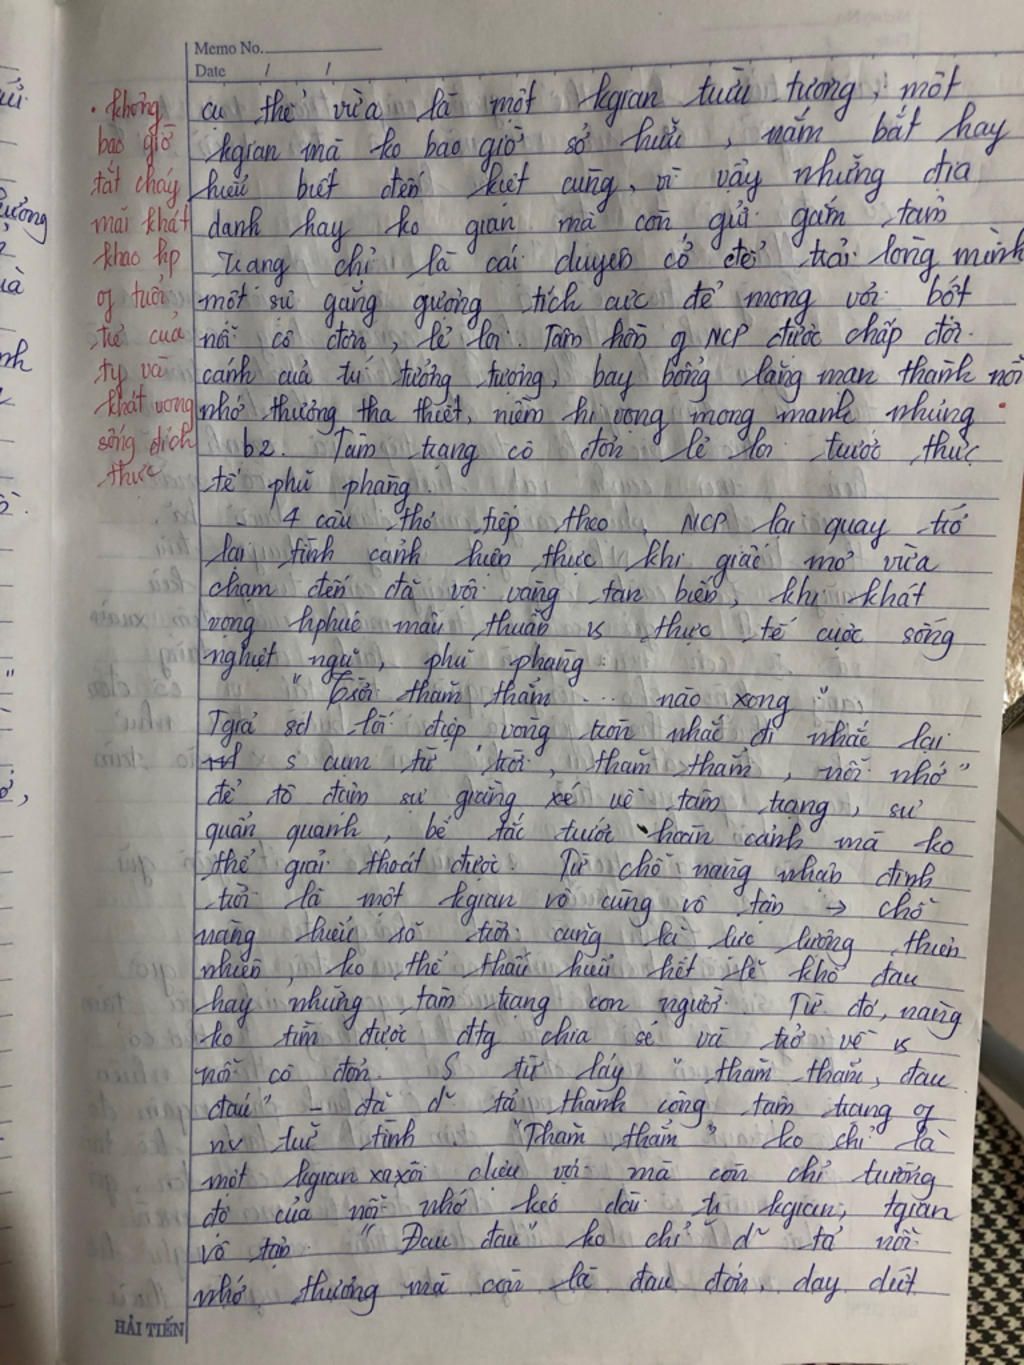 Memo No.
Date / /
• không
bao giờ
tắt cháy
mãi khát
khao hp
of tuổi
trẻ của
ty và
khát vọng
sống đích
thực
cụ thể vừa là một kgian tưởng tượng, một
kgian mà ko bao giờ sở hữu, nắm bắt hay
hiểu biết đến kiệt cùng, vì vậy những địa
danh hay ko gian mà còn gửi gắm tâm
trạng chỉ là cái duyên cớ để trải lòng mình
một sự gắng gượng tích cực để mong vơi bớt
nỗi cô đơn, lẻ loi. Tâm hồn of NCP được chấp đôi
cánh của trí tưởng tượng, bay bổng lãng mạn thành nỗi
nhớ thương tha thiết, niềm hi vọng mong manh nhưng
b2. Tâm trạng cô đơn lẻ loi trước thực
tế phũ phàng.
4 câu thơ tiếp theo, NCP lại quay trở
lại tình cảnh hiện thực khi giấc mơ vừa
chạm đến đã vội vàng tan biến, khi khát
vọng hphúc mâu thuẫn vs thực tế cuộc sống
nghiệt ngã, phũ phàng:
" Trời thăm thẳm ... nào xong "
Tgiả sd lối điệp vòng tròn nhắc đi nhắc lại
cụm từ " trời, thăm thẳm, nỗi nhớ "
để tô đậm sự giằng xé về tâm trạng, sự
quẩn quanh, bế tắc trước hoàn cảnh mà ko
thể giải thoát được. Từ chỗ nàng nhận định
trời là một kgian vô cùng vô tận → chỗ
nàng hiểu rõ trời cũng là lực lượng thiên
nhiên, ko thể thấu hiểu hết lẽ khổ đau
hay những tâm trạng con người. Từ đó, nàng
ko tìm được đtg chia sẻ và trở về vs
nỗi cô đơn. S từ láy " thăm thẳm, đau
đáu " - đã dtả thành công tâm trạng of
nv trữ tình. "Thăm thẳm " ko chỉ là
một kgian xa xôi diệu vợi mà còn chỉ trường
độ của nỗi nhớ kéo dài từ kgian, tgian
vô tận. " Đau đáu " ko chỉ d~ tả nỗi
nhớ thương mà còn là đau đớn, day dứt
HẢI TIẾN